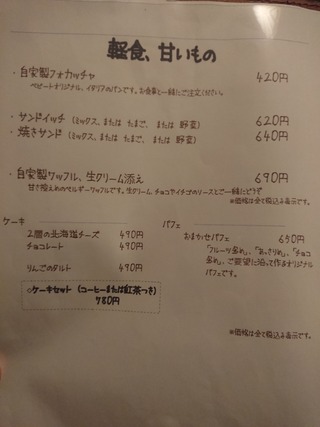 軽食、甘いもの
・自家製フォカッチャ 420円
ベビートオリジナル、イタリアのパンです。お食事と一緒にご注文ください。
・サンドイッチ（ミックス、または たまご、または 野菜） 620円
・焼きサンド（ミックス、または たまご、または 野菜） 640円
・自家製ワッフル、生クリーム添え 690円
甘さ控えめのベルギーワッフルです。生クリーム、チョコやイチゴのソースとご一緒にどうぞ
※価格は全て税込み表示です。
ケーキ
2層の北海道チーズ 490円
チョコレート 490円
りんごのタルト 490円
○ケーキセット（コーヒーまたは紅茶つき）
780円
パフェ
おまかせパフェ 650円
「フルーツ多め」、「あっさりめ」、「チョコ
多め」、ご要望に沿って作るオリジナル
パフェです。
※価格は全て税込み表示です。